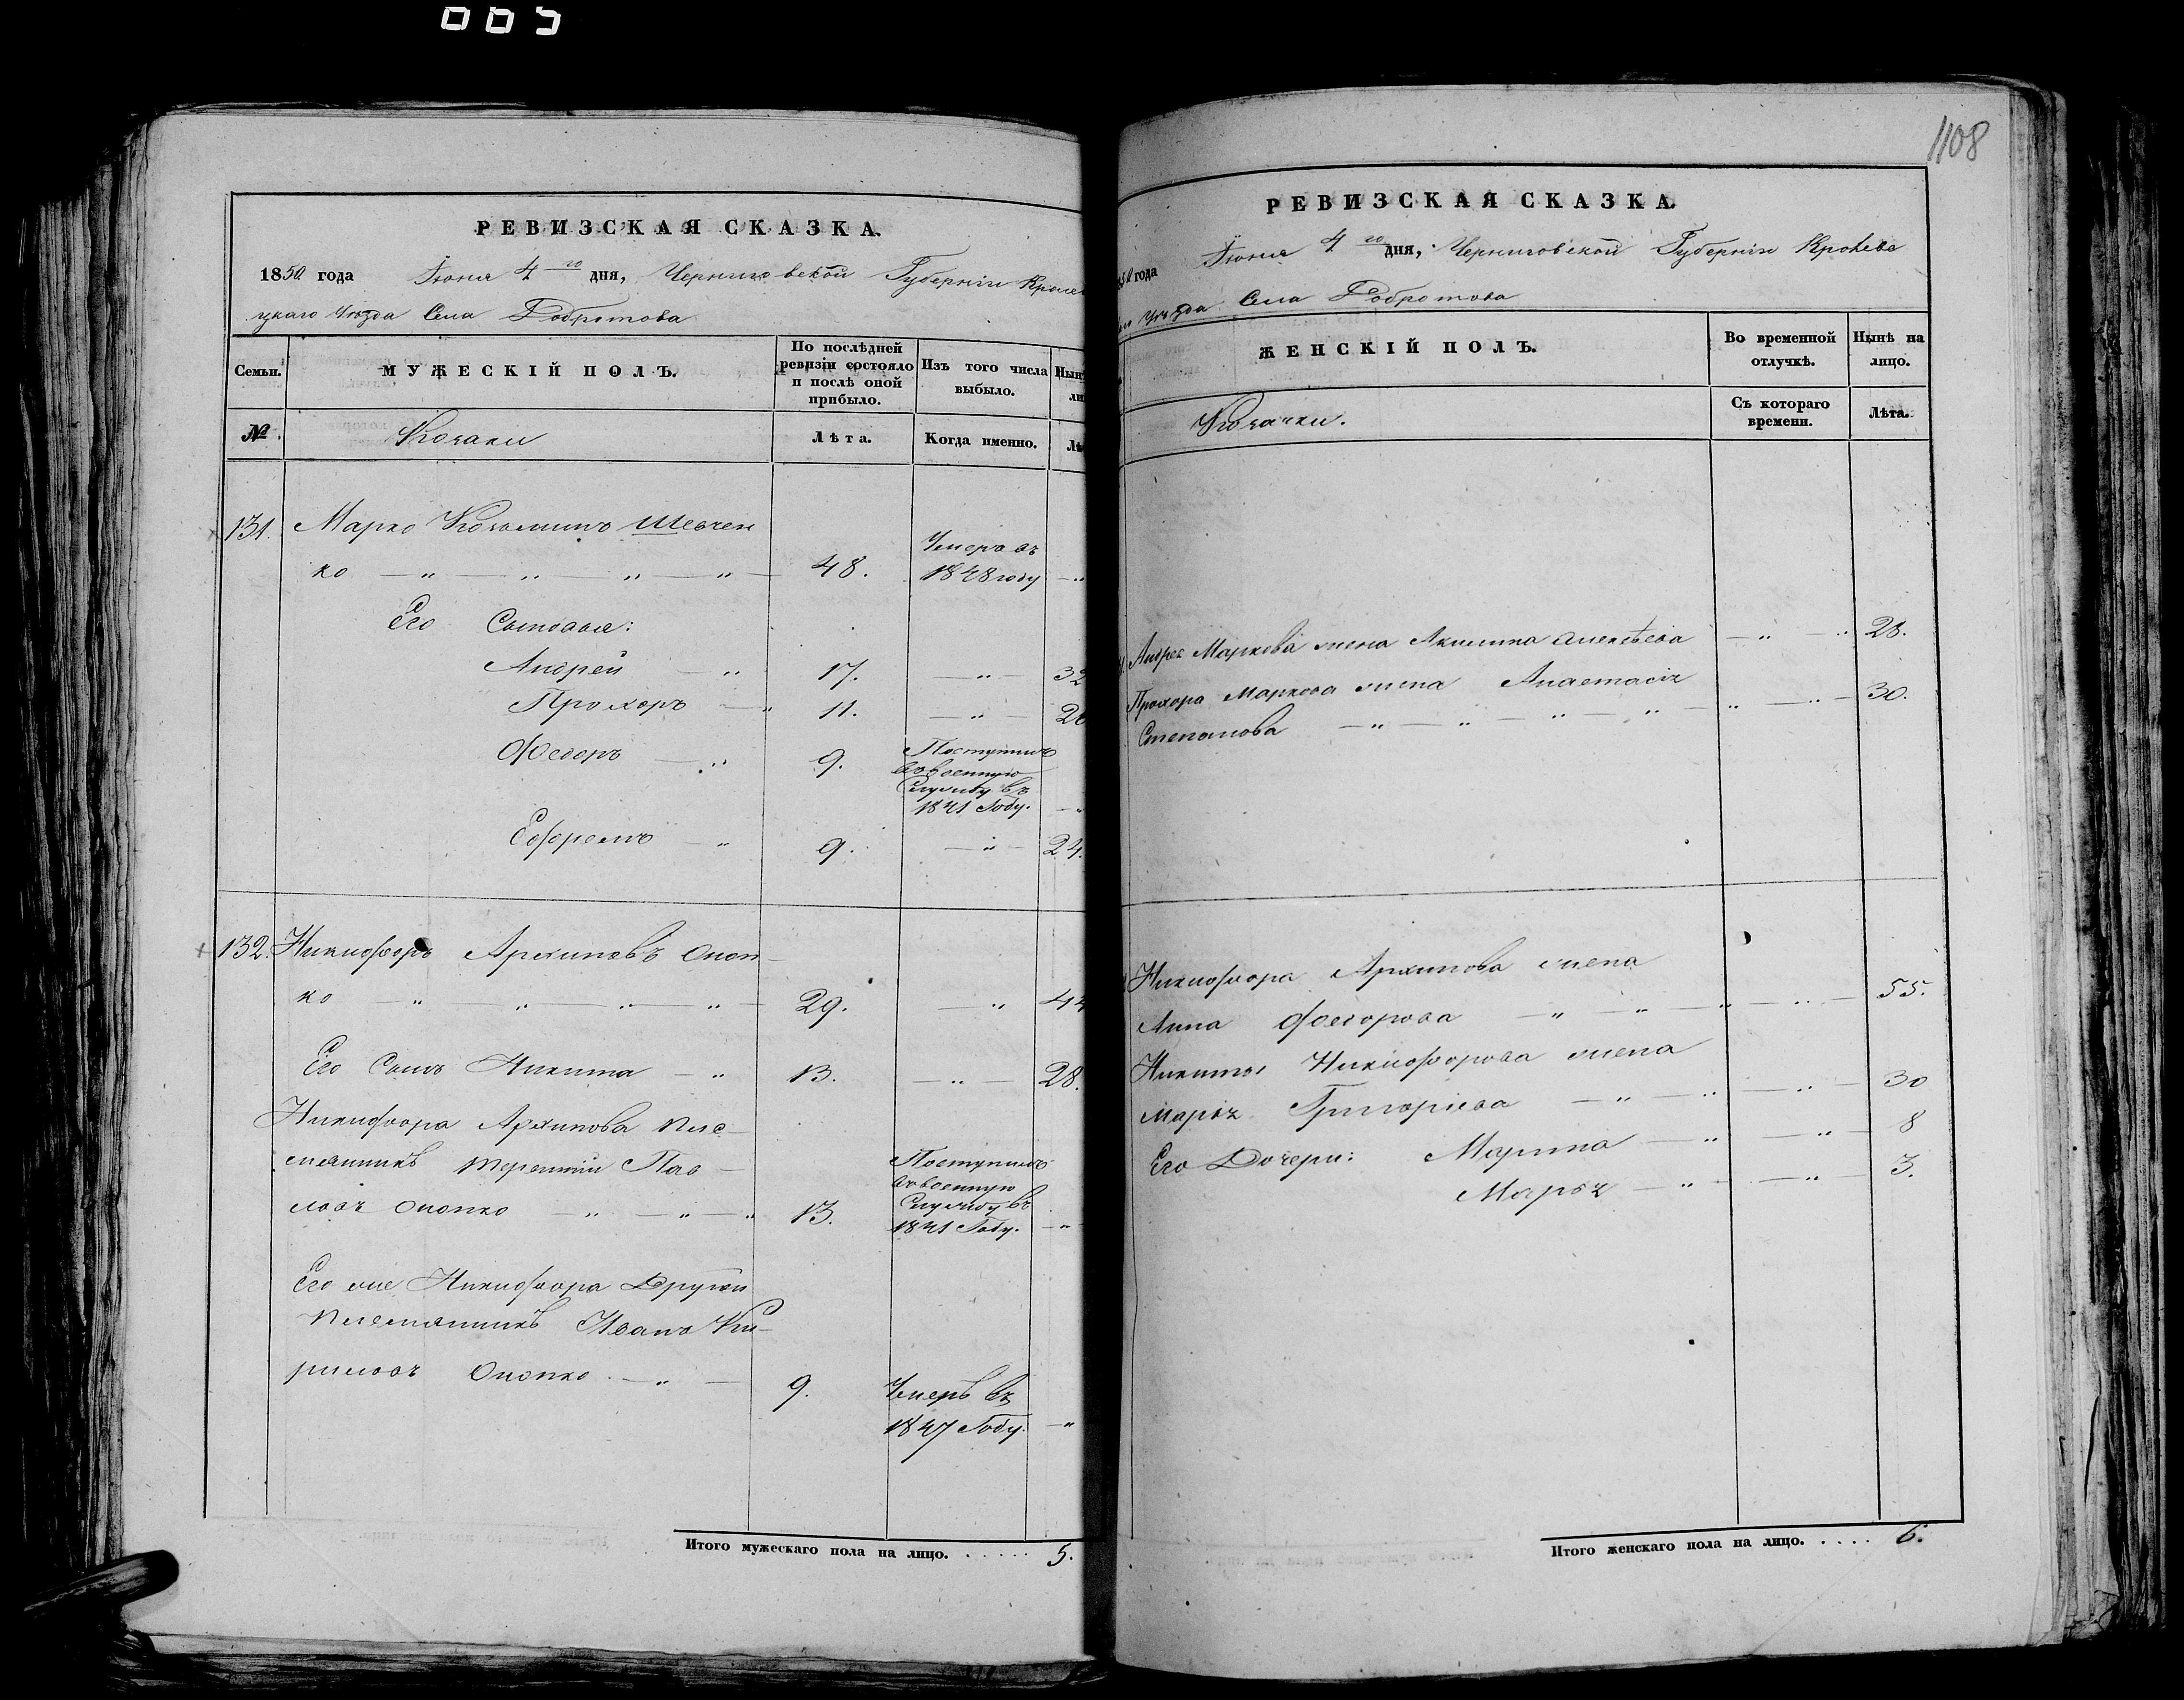 1108
РЕВИЗСКАЯ СКАЗКА.
1850 года Іюня 4го дня, Черниговской Губерніи Кролеве
цкаго Уѣзда Села Добротова
Семьи.
МУЖЕСКІЙ ПОЛЪ.
По послѣдней
ревизіи состояло
и послѣ оной
прибыло.
Изъ того числа
выбыло.
№
Козаки
Лѣта.
Когда именно.
131. Марко Козьминъ Шевчен
ко 48. Умеръ въ
1848 году
Его Сыновья:
Андрей 17. 32
Прохоръ 11. 26
Федоръ 9. Поступилъ
въ военную
Службу въ
1841 Году.
Ефремъ 9. 24.
132. Никифоръ Архиповъ Оноп
ко 29. 44
Его Сынъ Никита 13. 28.
Никифора Архипова пле
мянникъ Терентій Пав
ловъ Онопко 13. Поступилъ
въ военную
Службу въ
1841 Году.
Его же Никифора Другой
племянникъ Иванъ Ки
риловъ Онопко 9. Умеръ въ
1847 Году.
Итого мужескаго пола на лицо. 5.
РЕВИЗСКАЯ СКАЗКА.
года Іюня 4го дня, Черниговской Губерніи Кролеве
Уѣзда Села Добротова
ЖЕНСКІЙ ПОЛЪ.
Во временной
отлучкѣ.
Нынѣ на
лицо.
Козачки.
Съ котораго
времени.
Лѣта.
Андрея Маркова жена Акилина Алексѣева 28.
Прохора Маркова жена Анастасія
Степанова 30.
Никифора Архипова жена
Анна Федорова 55.
Никиты Никифорова жена
Марья Григорьева 30
Его Дочери: Марина 8
Марья 3.
Итого женскаго пола на лицо. 6.